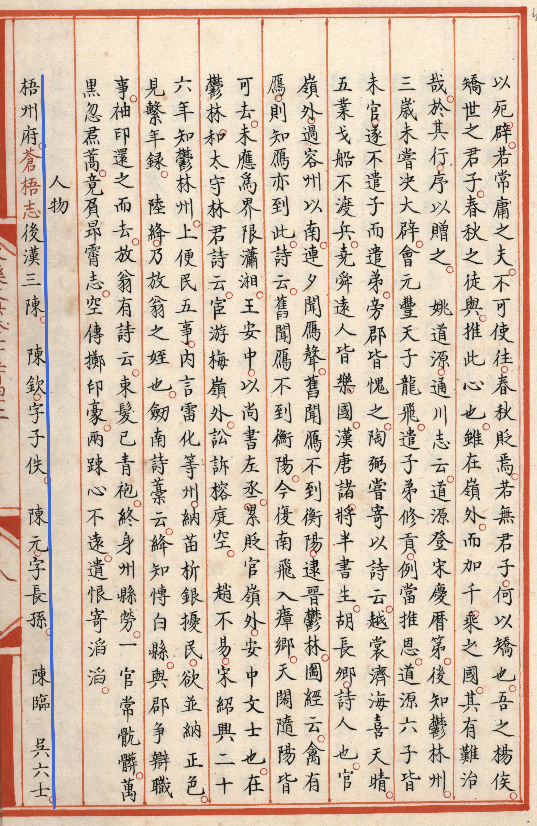 以死辟若常庸之夫不可使往春秋貶焉若無君子何以矯也吾之楊侯
矯世之君子春秋之徒與推此心也雖在嶺外而加千乘之國其有難治
哉於其行序以贈之　姚道源通川志云道源登宋慶曆第後知鬱林州
三歲未嘗決大辟會元豐天子龍飛遣子弟修貢例當推恩道源六子皆
未官遂不遣子而遣弟旁郡皆愧之陶弼嘗寄以詩云越裳濟海喜天晴
五業戈船不渡兵堯舜遠人皆樂國漢唐諸將半書生胡長卿詩人也官
嶺外過容州以南連夕聞鴈聲舊聞鴈不到衡陽逮晉鬱林圖經云禽有
鴈則知鴈亦到此詩云舊聞鴈不到衡陽今復南飛入瘴鄉天闊隨陽皆
可去未應為界限瀟湘王安中以尚書左丞累貶官嶺外安中文士也在
鬱林和太守林君詩云宦游梅嶺外訟訴榕庭空　趙不易宋紹興二十
六年知鬱林州上便民五事內言雷化等州納苗折銀擾民欲並納正色
見繫年錄　陸絳乃放翁之姪也劒南詩藁云絳知愽白縣與郡爭辯職
事袖印還之而去放翁有詩云束髮已青袍終身州縣勞一官常骯髒萬
黑忽焄蒿竟屓昂霄志空傳擲印豪兩踈心不遠遺恨寄滔滔
人物
梧州府蒼梧志後漢三陳　陳欽字子佚　陳元字長孫　陳臨　吳六士